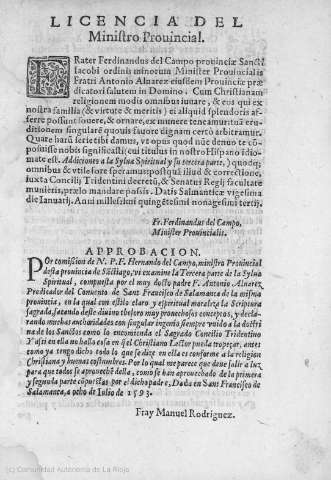 LICENCIA DEL
Ministro Prouincial.
FRater Ferdinandus del Campo prouinciæ Sancti
Iacobi ordinis minorum Minister Prouincialis
Fratri Antonio Aluarez eiusdem Prouinciæ præ
dicatori salutem in Domino. Cum Christianam
religionem modis omnibus iuuare, & eos qui ex
nostra familia (& virtute & meritis) ei aliquid splendoris af-
ferre possint fouere, & ornare, ex munere teneamur: tuā eru-
ditionem singularē quouis fauore dignam certò arbitramur.
Quare harū serie tibi damus, vt opus quod nūc denuo te cō-
posuisse nobis significasti; cui titulus in nostro Hispano idio-
mate est. Addiciones a la Sylua Spiritual y su tercera parte,) quodq;
omnibus & vtile fore speramus: postquā illud & correctione,
iuxta Concilij Tridentini decretū, & Senatus Regij facultate
munieris, prælo mandare possis. Datis Salmanticæ vigesima
die Ianuarij. Anni millesimi quingētesimi nonagesimi tertij.
Fr. Ferdinandus del Campo,
Minister Prouincialis.
APPROBACION.
POr comission de N. P. F. Hernando del Campo, ministro Prouincial
desta prouincia de Sātiago, vi examine la Tercera parte de la Sylua
Spiritual, compuesta por el muy docto padre F. Antonio Aluarez
Predicador del Conuento de Sant Francisco de Salamanca de la misma
prouincia, en la qual con estilo claro y espiritual moraliza la Scriptura
sagrada, sacando deste diuino thesoro muy prouechosos conceptos, y decla-
rando muchas anchoridades con singular ingenio siempre vnido a la doctri-
na de los Sanctos como lo encomienda el Sagrado Concilio Tridentino
Y assi en ella no hallo cosa en q̄ el Christiano Lector pueda tropeçar, antes
como ya tengo dicho todo lo que se dize en ella es conforme a la religion
Christiana y buenas costumbres. Por lo qual me parece que deue salir a luz
para que todos se aprouechē della, como se han aprouechado de la primera
y segunda parte cōpuestas por el dicho padre. Dada en Sant Francisco de
Salamanca, a ocho de Iulio de 1593.
Fray Manuel Rodriguez.
(c) Comunidad Autónoma de La Rioja